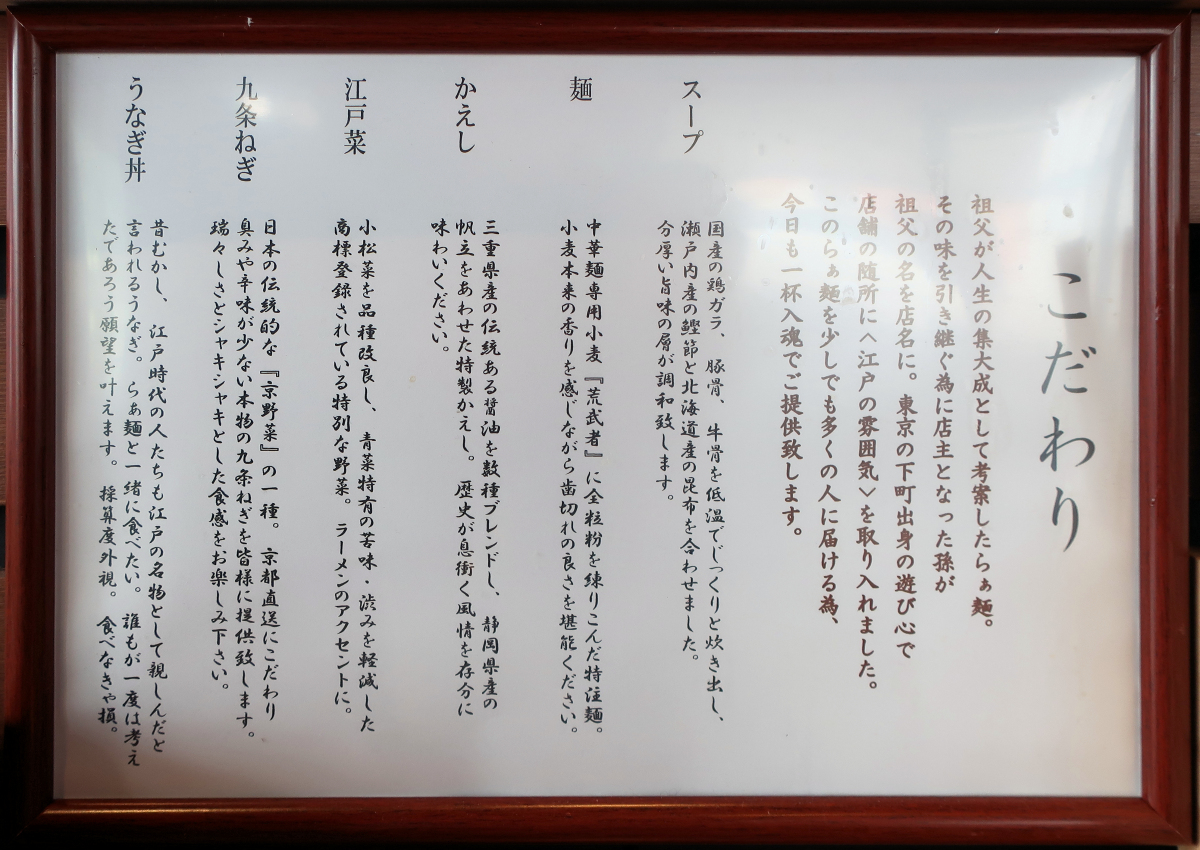 こだわり
祖父が人生の集大成として考案したらぁ麺。
その味を引き継ぐ為に店主となった孫が
祖父の名を店名に。東京の下町出身の遊び心で
店舗の随所に〈江戸の雰囲気〉を取り入れました。
このらぁ麺を少しでも多くの人に届ける為、
今日も一杯入魂でご提供致します。
スープ
国産の鶏ガラ、豚骨、牛骨を低温でじっくりと炊き出し、
瀬戸内産の鰹節と北海道産の昆布を合わせました。
分厚い旨味の層が調和致します。
麺
中華麺専用小麦『荒武者』に全粒粉を練りこんだ特注麺。
小麦本来の香りを感じながら歯切れの良さを堪能ください。
かえし
三重県産の伝統ある醤油を数種ブレンドし、静岡県産の
帆立をあわせた特製かえし。歴史が息衝く風情を存分に
味わいください。
江戸菜
小松菜を品種改良し、青菜特有の苦味・渋みを軽減した
商標登録されている特別な野菜。ラーメンのアクセントに。
九条ねぎ
日本の伝統的な『京野菜』の一種。京都直送にこだわり
臭みや辛味が少ない本物の九条ねぎを皆様に提供致します。
瑞々しさとシャキシャキとした食感をお楽しみ下さい。
うなぎ丼
昔むかし、江戸時代の人たちも江戸の名物として親しんだと
言われるうなぎ。らぁ麺と一緒に食べたい。誰もが一度は考え
たであろう願望を叶えます。採算度外視。食べなきゃ損。